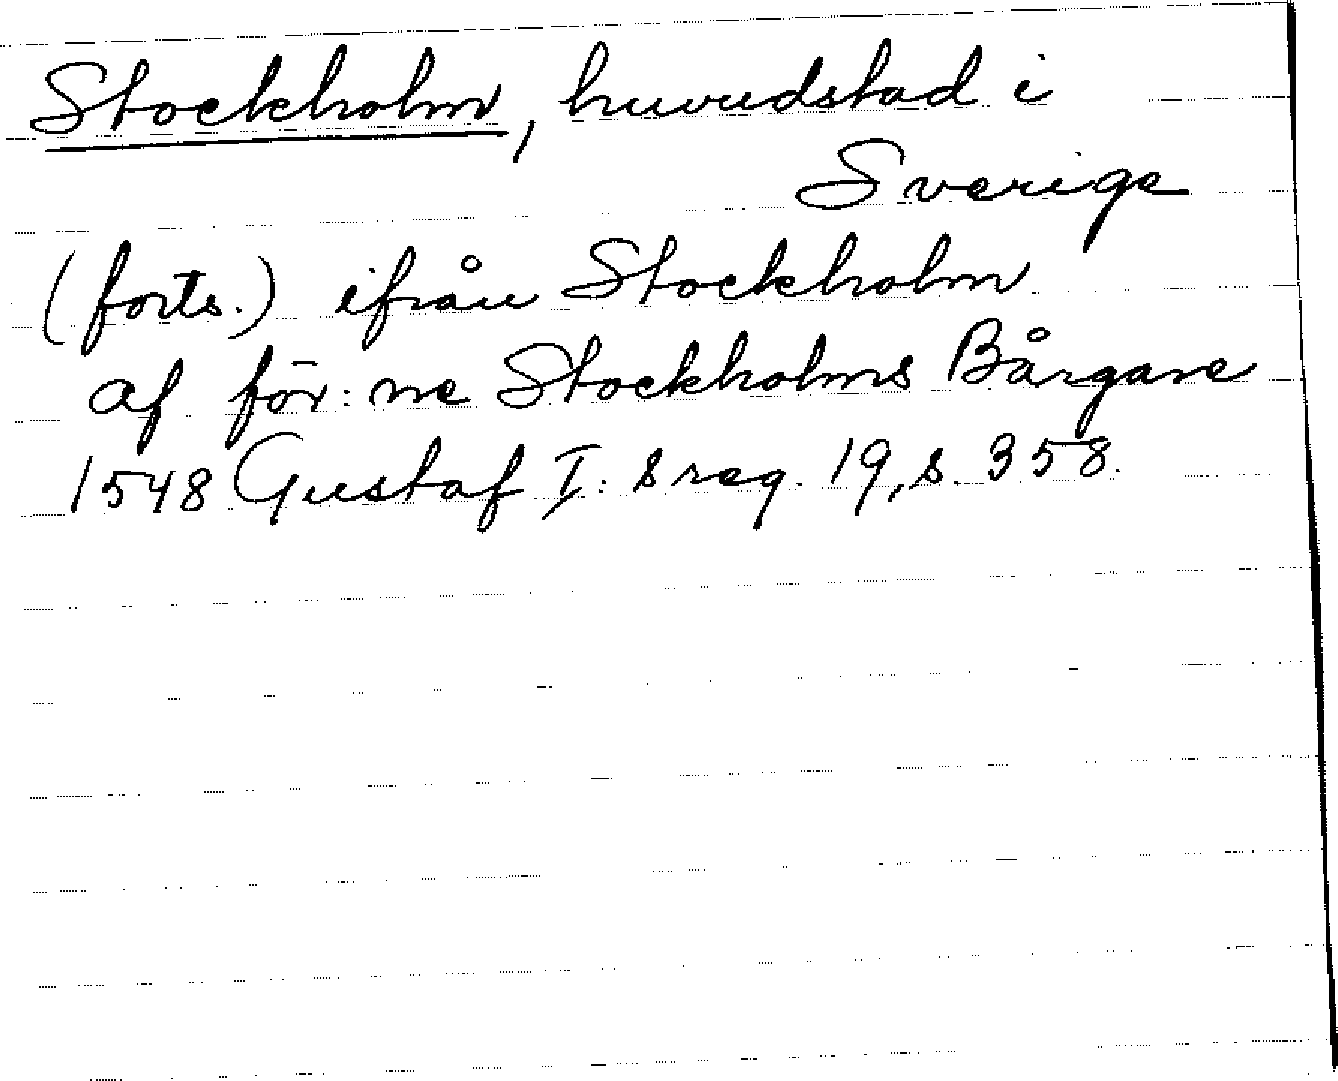 Stockholm, huvudstad i
Sverige
(forts.) ifrån Stockholm
af för:ne Stockholms Bårgare
1548 Gustaf I:s reg. 19, s. 358.